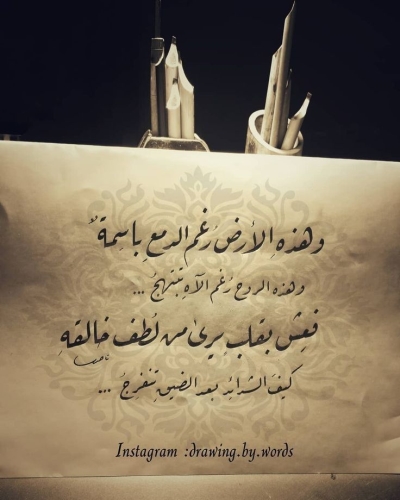 وهذهِ الأرضُ رُغم الدمعِ باسِمةٌ
وهذه الروح رُغم الآهِ تبتهجُ ...
فعِش بقلبٍ يرىٰ من لُطف خالقهِ
كيفَ الشدائِد بعد الضيقِ تنفرجُ ...
Instagram :drawing.by.words